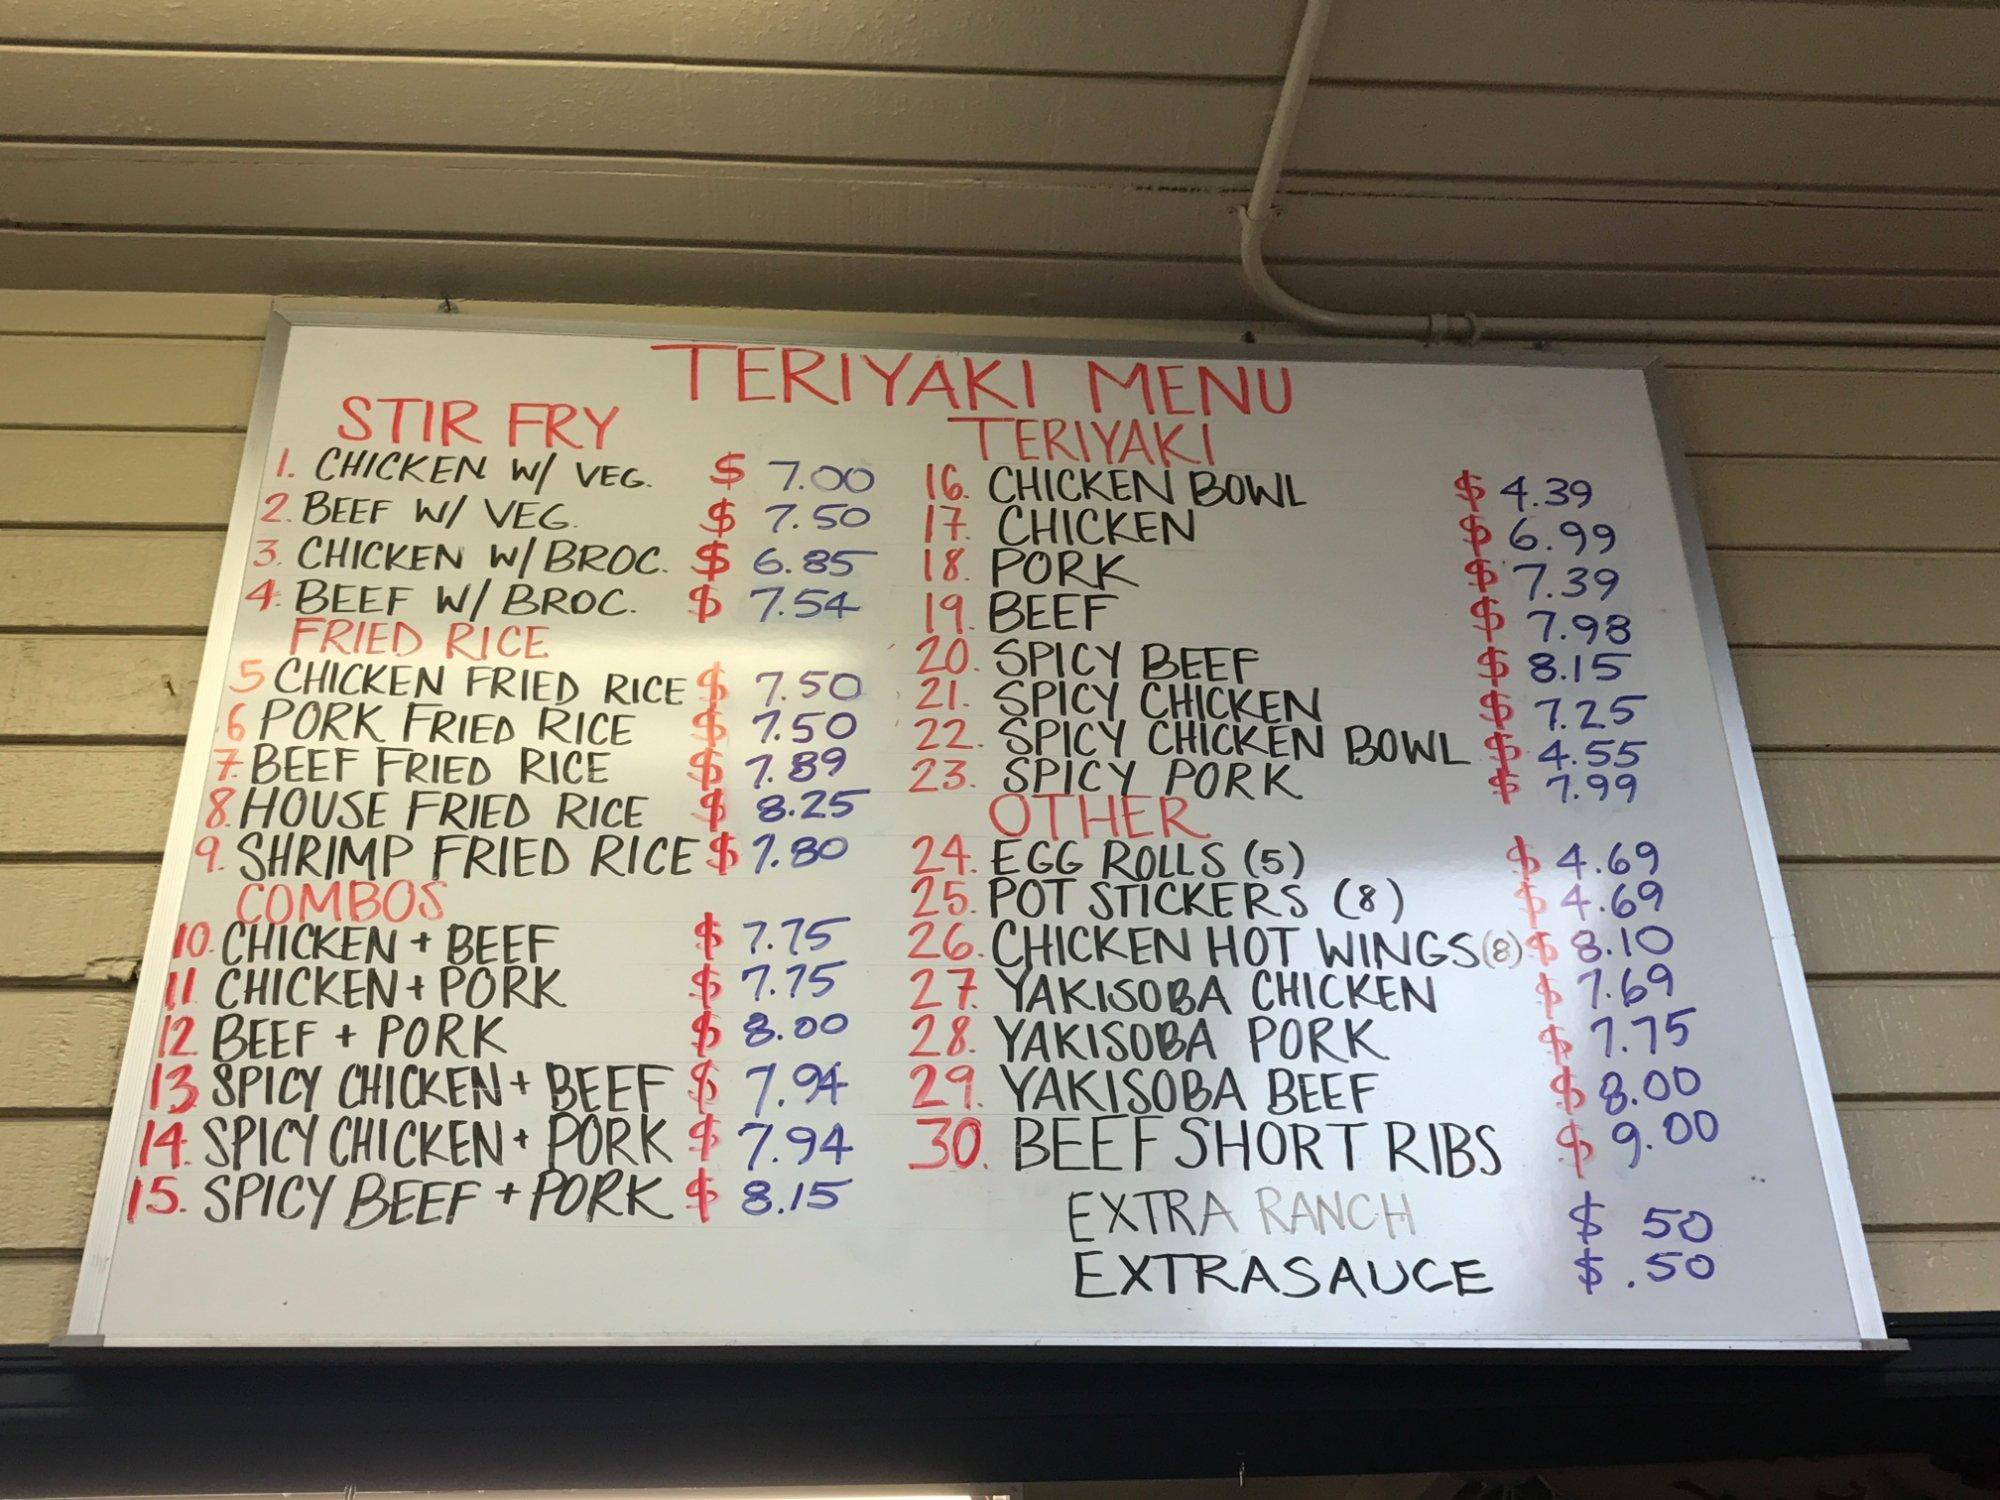 TERIYAKI MENU
STIR FRY
1. CHICKEN W/ VEG. $ 7.00
2. BEEF W/ VEG. $ 7.50
3. CHICKEN W/ BROC. $ 6.85
4. BEEF W/ BROC. $ 7.54
FRIED RICE
5 CHICKEN FRIED RICE $ 7.50
6 PORK FRIED RICE $ 7.50
7. BEEF FRIED RICE $ 7.89
8. HOUSE FRIED RICE $ 8.25
9. SHRIMP FRIED RICE $ 7.80
COMBOS
10. CHICKEN + BEEF $ 7.75
11 CHICKEN + PORK $ 7.75
12 BEEF + PORK $ 8.00
13 SPICY CHICKEN + BEEF $ 7.94
14. SPICY CHICKEN + PORK $ 7.94
15. SPICY BEEF + PORK $ 8.15
TERIYAKI
16. CHICKEN BOWL $ 4.39
17. CHICKEN $ 6.99
18. PORK $ 7.39
19. BEEF $ 7.98
20. SPICY BEEF $ 8.15
21. SPICY CHICKEN $ 7.25
22. SPICY CHICKEN BOWL $ 4.55
23. SPICY PORK $ 7.99
OTHER
24. EGG ROLLS (5) $ 4.69
25. POT STICKERS (8) $ 4.69
26. CHICKEN HOT WINGS (8) $ 8.10
27. YAKISOBA CHICKEN $ 7.69
28. YAKISOBA PORK $ 7.75
29. YAKISOBA BEEF $ 8.00
30. BEEF SHORT RIBS $ 9.00
EXTRA RANCH $ 50
EXTRA SAUCE $ .50